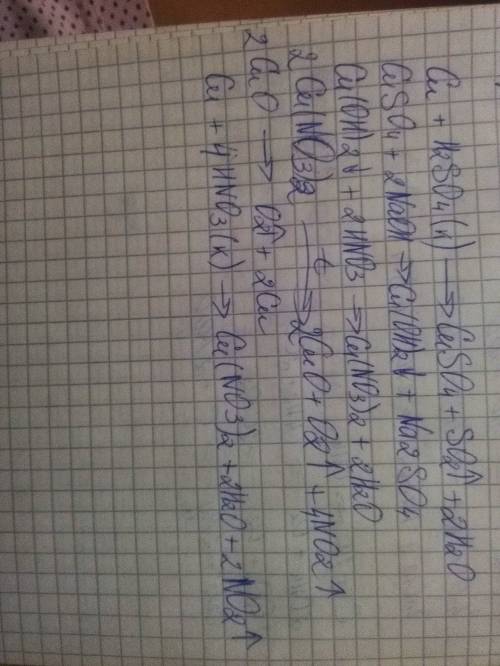 Cu + H2SO4(к) → CuSO4 + SO2↑ + 2H2O
CuSO4 + 2NaOH → Cu(OH)2↓ + Na2SO4
Cu(OH)2↓ + 2HNO3 → Cu(NO3)2 + 2H2O
2Cu(NO3)2 —t→ 2CuO + O2↑ + 4NO2↑
2CuO → O2↑ + 2Cu
Cu + 4HNO3(к) → Cu(NO3)2 + 2H2O + 2NO2↑